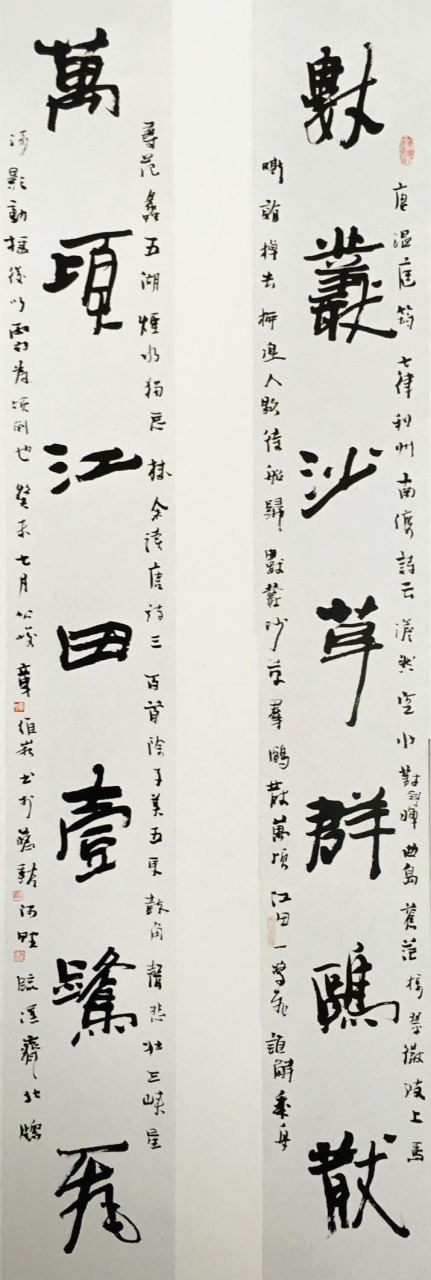 唐溫庭筠七律利州南渡詩云澹然空水對斜暉曲島蒼茫接翠微波上馬
數叢沙草群鷗散
嘶看棹去柳邊人歇待船歸數叢沙草羣鷗散萬頃江田一鷺飛誰解乘舟
尋范蠡五湖煙水獨忘機余讀唐詩三百首除子美五更鼓角聲悲壯三峽星
萬頃江田壹鷺飛
河影動搖後以為傾倒也癸未七月